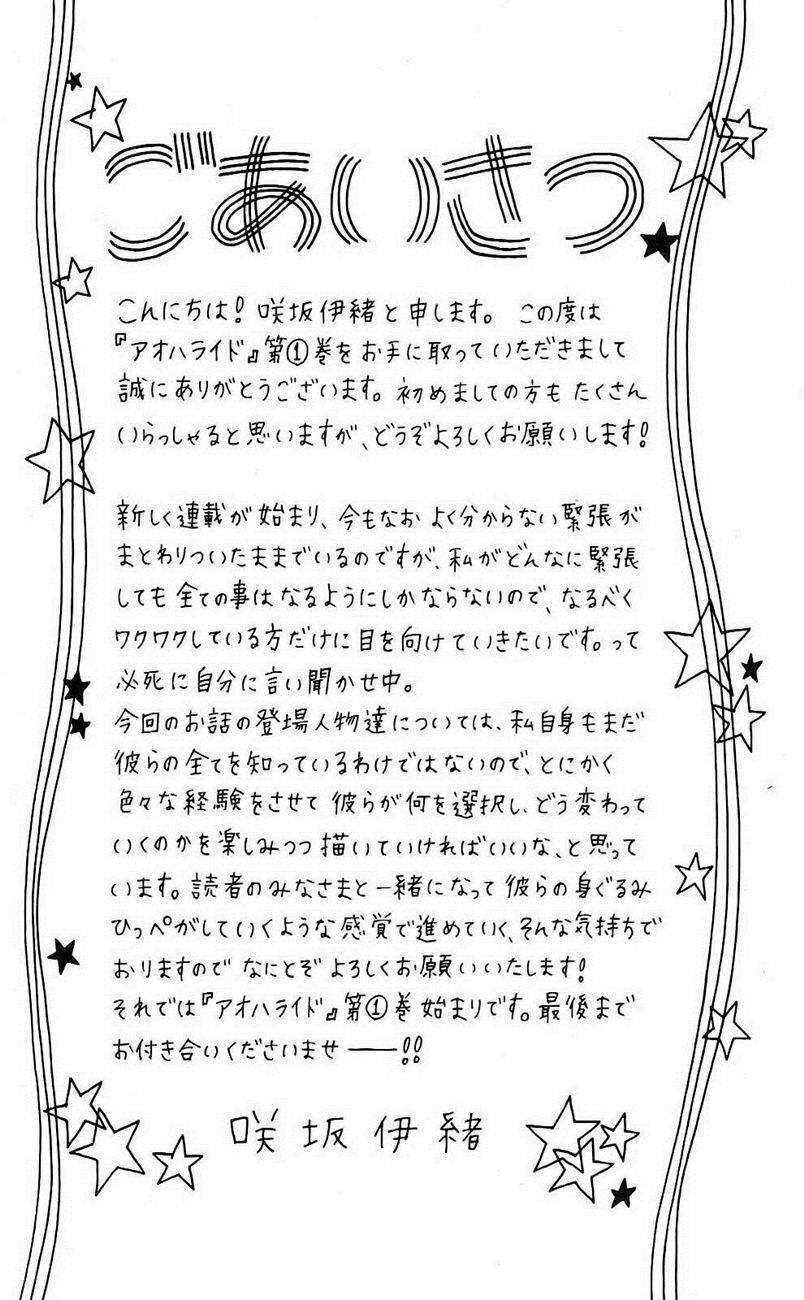 ごあいさつ
こんにちは! 咲坂伊緒と申します。 この度は
『アオハライド』第①巻をお手に取っていただきまして
誠にありがとうございます。初めましての方も たくさん
いらっしゃると思いますが、どうぞよろしくお願いします!
新しく連載が始まり、今もなお よく分からない緊張が
まとわりついたままでいるのですが、私がどんなに緊張
しても全ての事はなるようにしかならないので、なるべく
ワクワクしている方だけに目を向けていきたいです。って
必死に自分に言い聞かせ中。
今回のお話の登場人物達については、私自身もまだ
彼らの全てを知っているわけではないので、とにかく
色々な経験をさせて彼らが何を選択し、どう変わって
いくのかを楽しみつつ描いていければいいな、と思って
います。読者のみなさまと一緒になって彼らの身ぐるみ
ひっぺがしていくような感覚で進めていく、そんな気持ちで
おりますので なにとぞ よろしくお願いいたします!
それでは『アオハライド』第①巻 始まりです。最後まで
お付き合いくださいませ――!!
咲坂伊緒